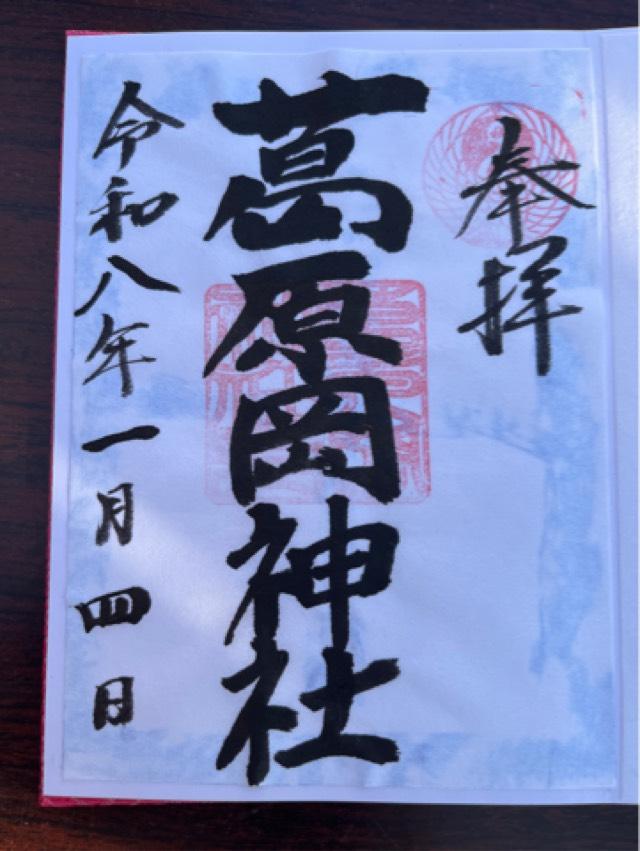 奉拝
葛原岡神社
令和八年一月四日